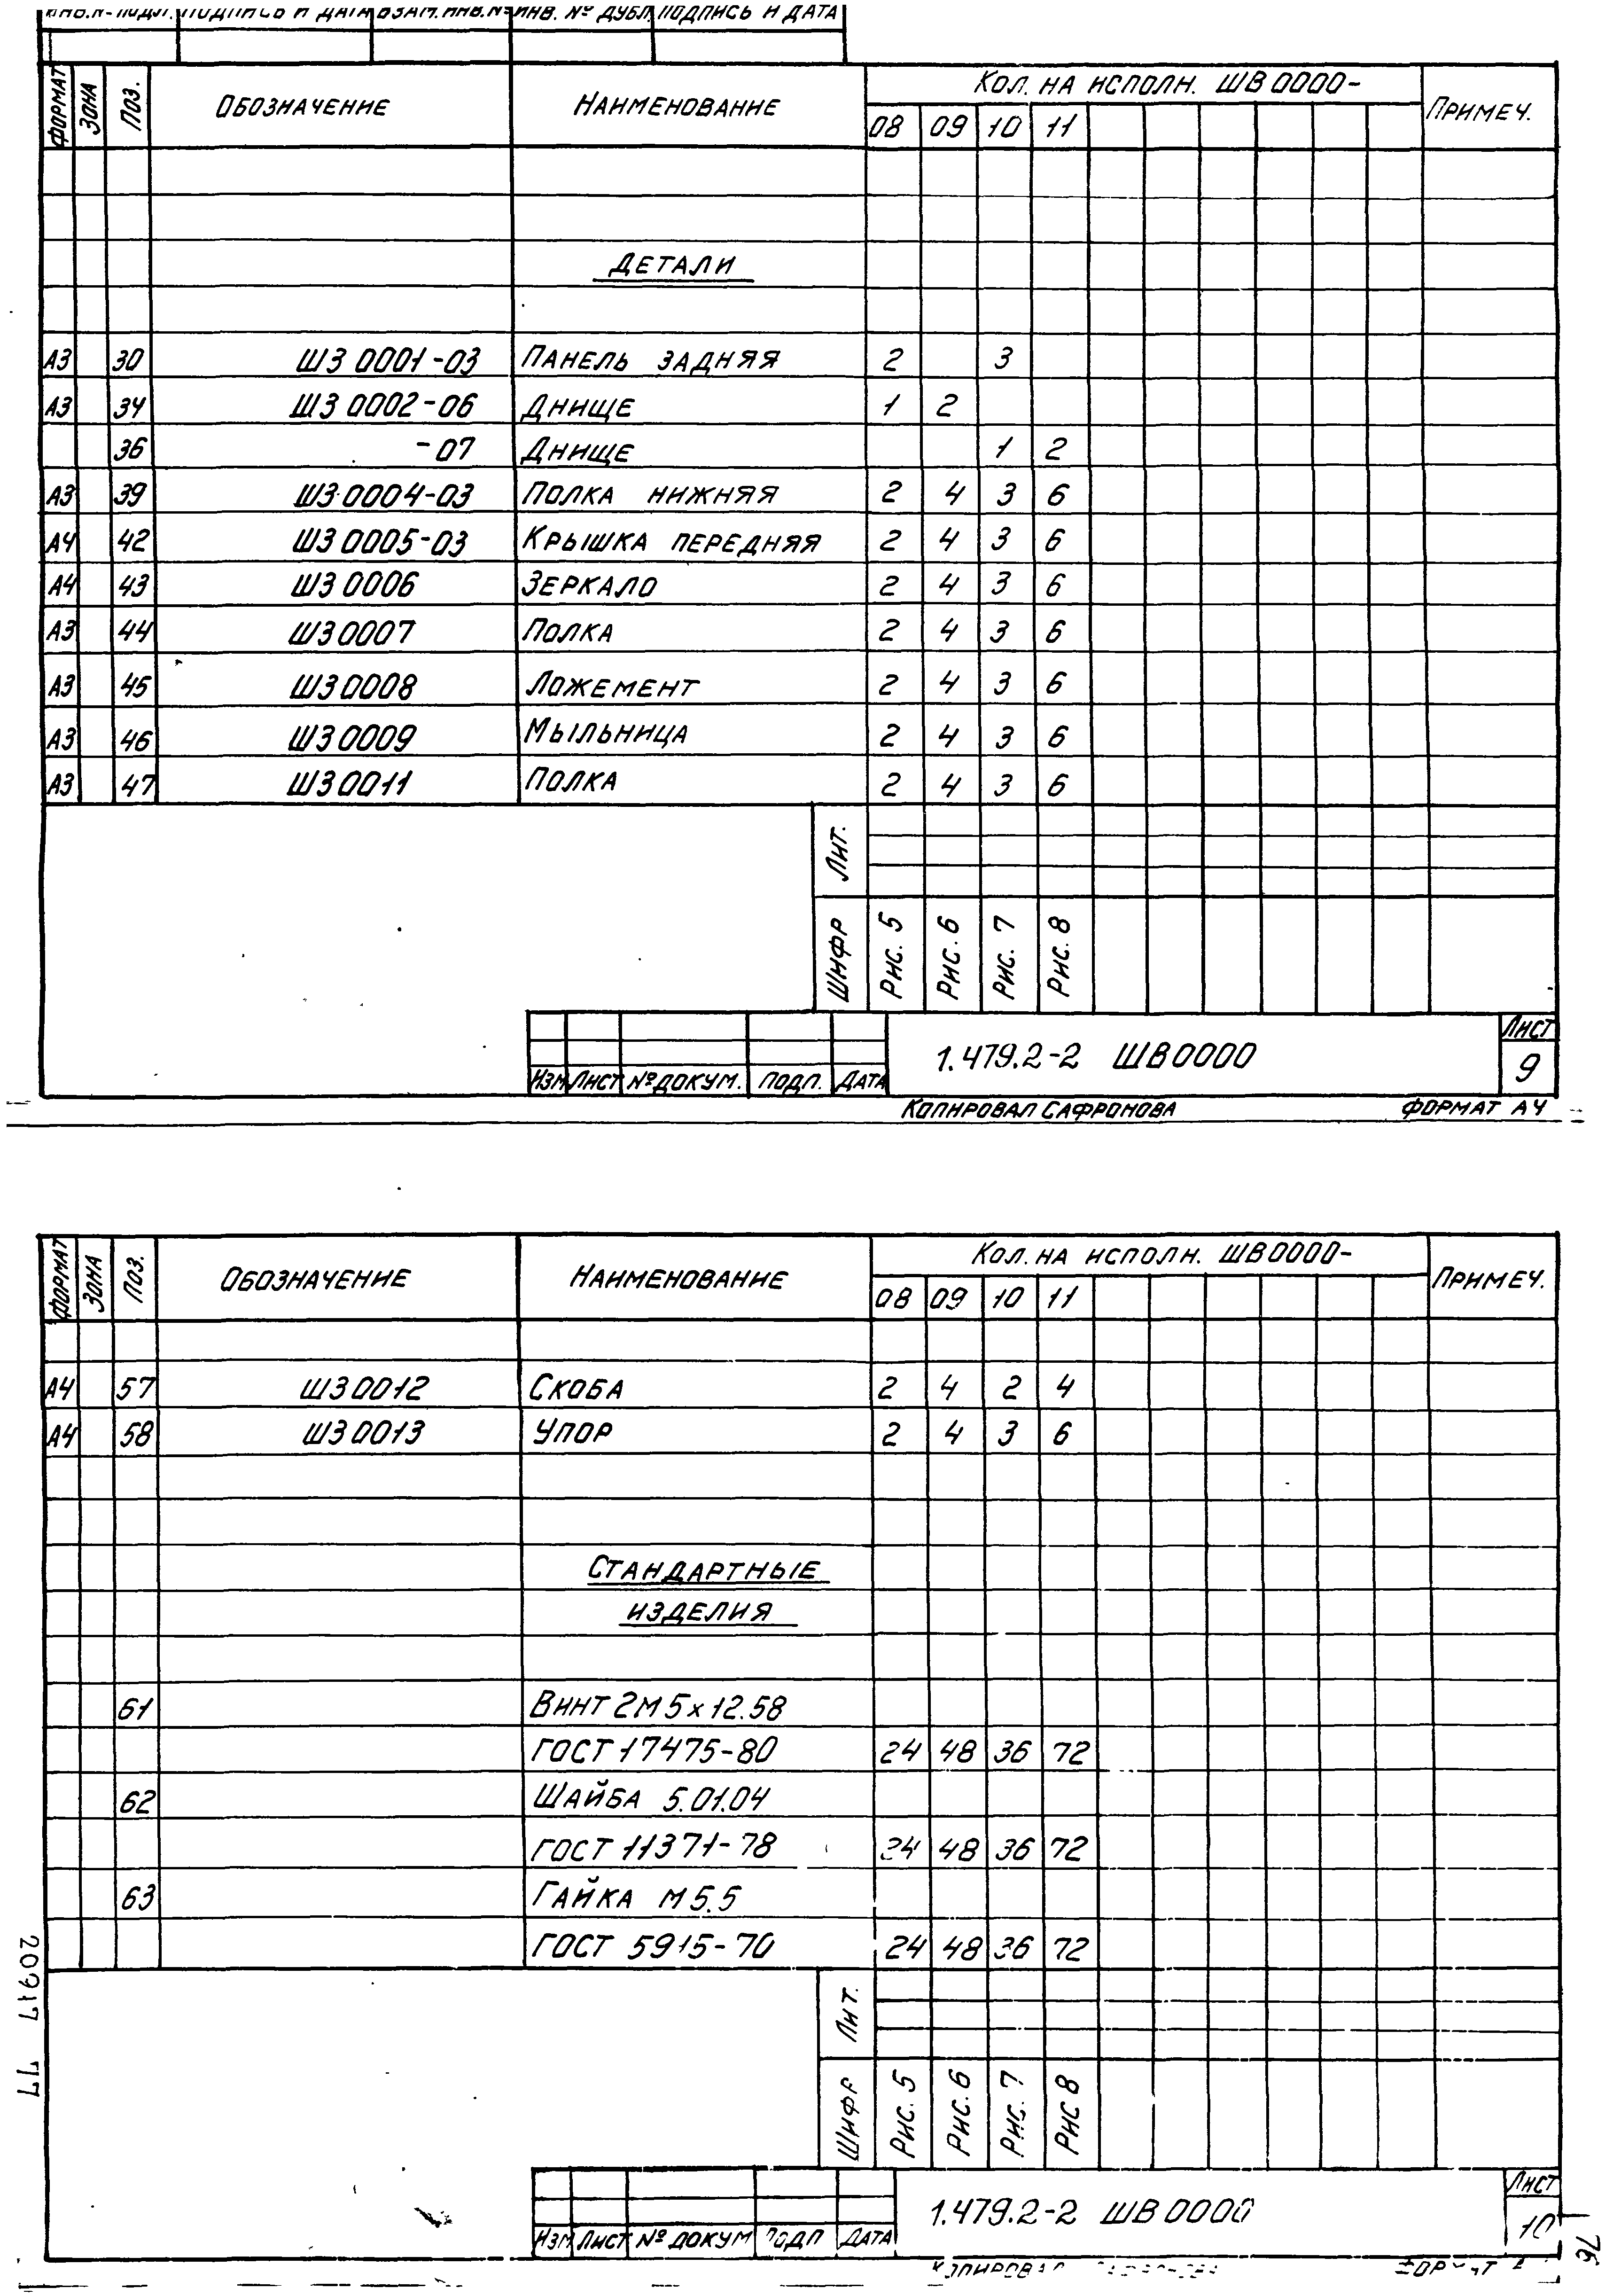 ИНВ.№ ПОДЛ. ПОДПИСЬ И ДАТА ВЗАМ. ИНВ.№ ИНВ. № ДУБЛ. ПОДПИСЬ И ДАТА
ФОРМАТ ЗОНА ПОЗ. ОБОЗНАЧЕНИЕ НАИМЕНОВАНИЕ КОЛ. НА ИСПОЛН. ШВ 0000- ПРИМЕЧ.
08 09 10 11
ДЕТАЛИ
А3 30 ШЗ 0001-03 ПАНЕЛЬ ЗАДНЯЯ 2 3
А3 34 ШЗ 0002-06 ДНИЩЕ 1 2
36 -07 ДНИЩЕ 1 2
А3 39 ШЗ 0004-03 ПОЛКА НИЖНЯЯ 2 4 3 6
А4 42 ШЗ 0005-03 КРЫШКА ПЕРЕДНЯЯ 2 4 3 6
А4 43 ШЗ 0006 ЗЕРКАЛО 2 4 3 6
А3 44 ШЗ 0007 ПОЛКА 2 4 3 6
А3 45 ШЗ 0008 ЛОЖЕМЕНТ 2 4 3 6
А3 46 ШЗ 0009 МЫЛЬНИЦА 2 4 3 6
А3 47 ШЗ 0011 ПОЛКА 2 4 3 6
ЛИТ.
ШИФР РИС. 5 РИС. 6 РИС. 7 РИС. 8
ИЗМ ЛИСТ № ДОКУМ. ПОДП. ДАТА
1.479.2-2 ШВ 0000
ЛИСТ
9
КОПИРОВАЛ САФРОНОВА ФОРМАТ А4
ФОРМАТ ЗОНА ПОЗ. ОБОЗНАЧЕНИЕ НАИМЕНОВАНИЕ КОЛ. НА ИСПОЛН. ШВ 0000- ПРИМЕЧ.
08 09 10 11
А4 57 ШЗ 0012 СКОБА 2 4 2 4
А4 58 ШЗ 0013 УПОР 2 4 3 6
СТАНДАРТНЫЕ
ИЗДЕЛИЯ
61 ВИНТ 2М 5х12.58
ГОСТ 17475-80 24 48 36 72
62 ШАЙБА 5.01.04
ГОСТ 11371-78 24 48 36 72
63 ГАЙКА М 5.5
ГОСТ 5915-70 24 48 36 72
ЛИТ.
ШИФР РИС. 5 РИС. 6 РИС. 7 РИС 8
ИЗМ ЛИСТ № ДОКУМ ПОДП ДАТА
1.479.2-2 ШВ 0000
ЛИСТ
10
КОПИРОВАЛ ФОРМАТ
20917 77
76